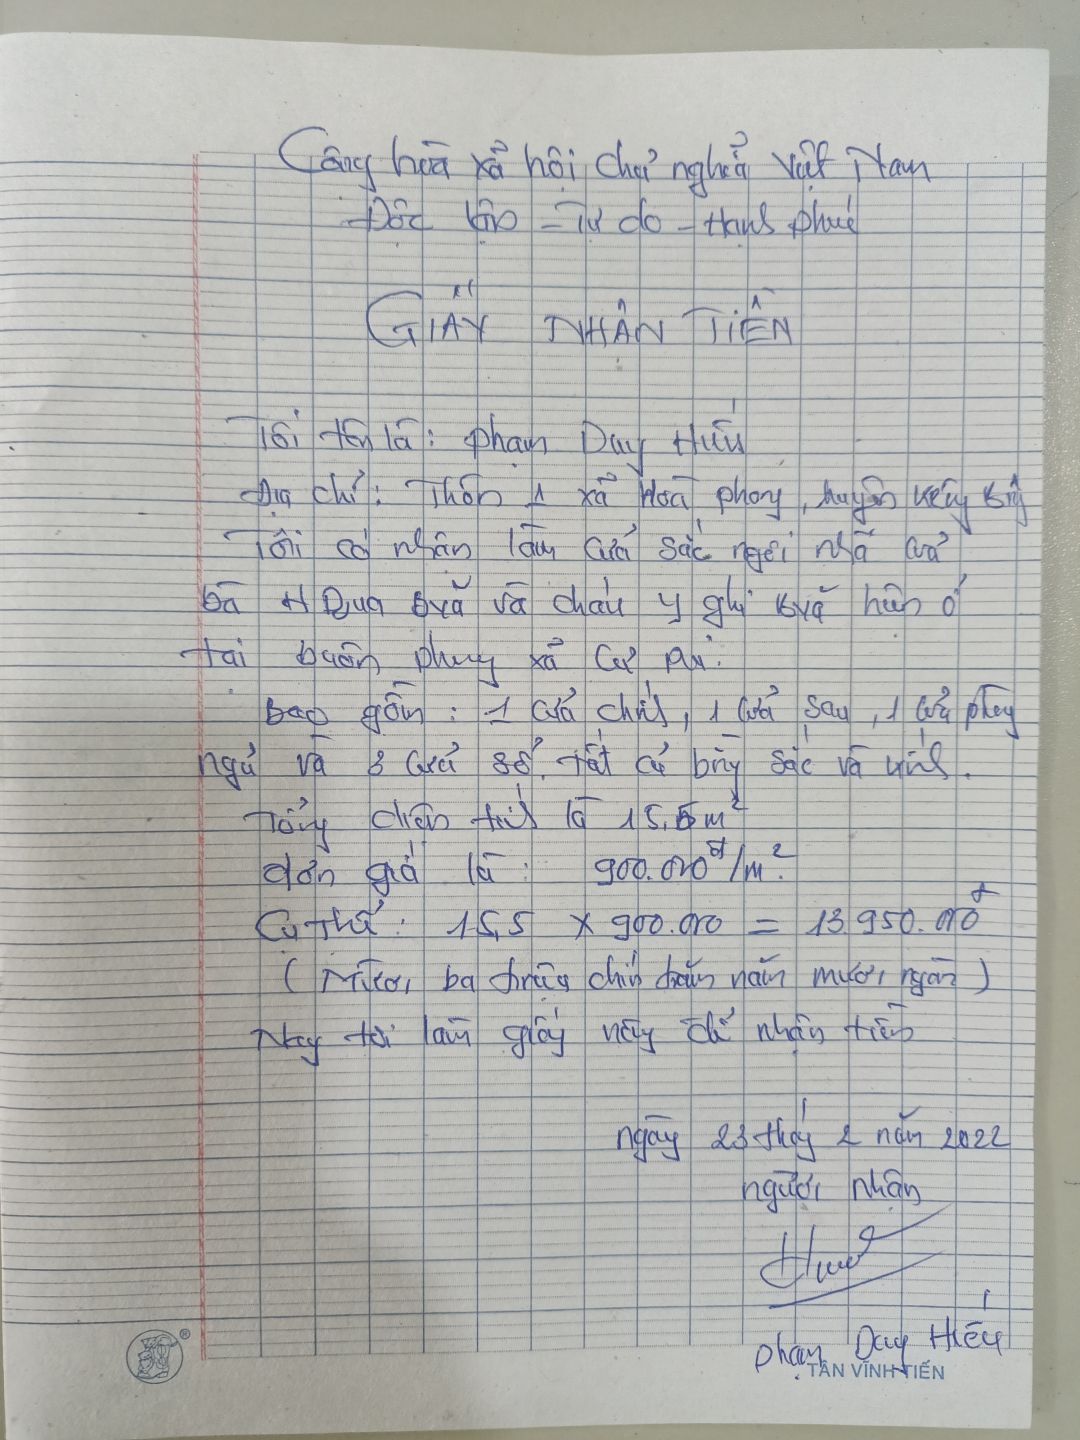 Cộng hoà xã hội chủ nghĩa Việt Nam
Độc lập - Tự do - Hạnh phúc
GIẤY NHẬN TIỀN
Tôi tên là: phạm Duy Hiếu
Địa chỉ: Thôn 1 xã Hoà phong, huyện
Tôi có nhận làm cửa sắc ngôi nhà của
bà H Dua và cháu Y ghi hiện ở
tại buôn phung xã Cư
Bao gồm: 1 cửa chính, 1 cửa sau, 1 cửa phòng
ngủ và 3 cửa sổ. tất cả bằng sắc và kính.
Tổng diện tích là 15,5m²
đơn giá là: 900.000đ/m².
Cụ thể: 15,5 x 900.000 = 13.950.000đ
(Mười ba triệu chín trăm năm mươi ngàn)
Nay tôi làm giấy này để nhận tiền
ngày 23 tháng 2 năm 2022
người nhận
phạm Duy Hiếu
TÂN VĨNH TIẾN